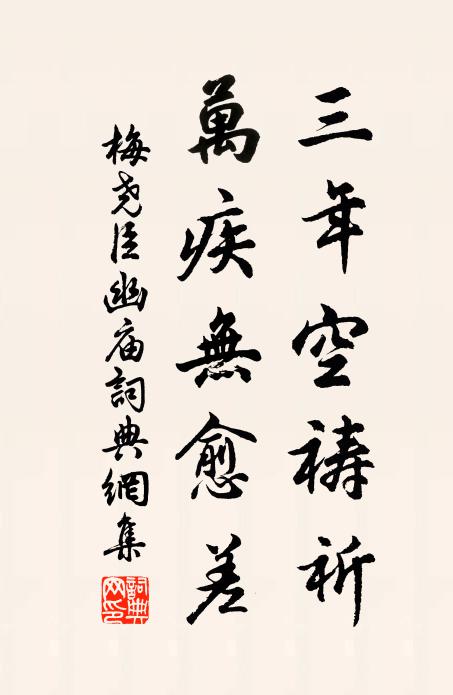 三年空祷祈
萬疾無愈差
梅尧臣幽庙詞典網集
詞典網印